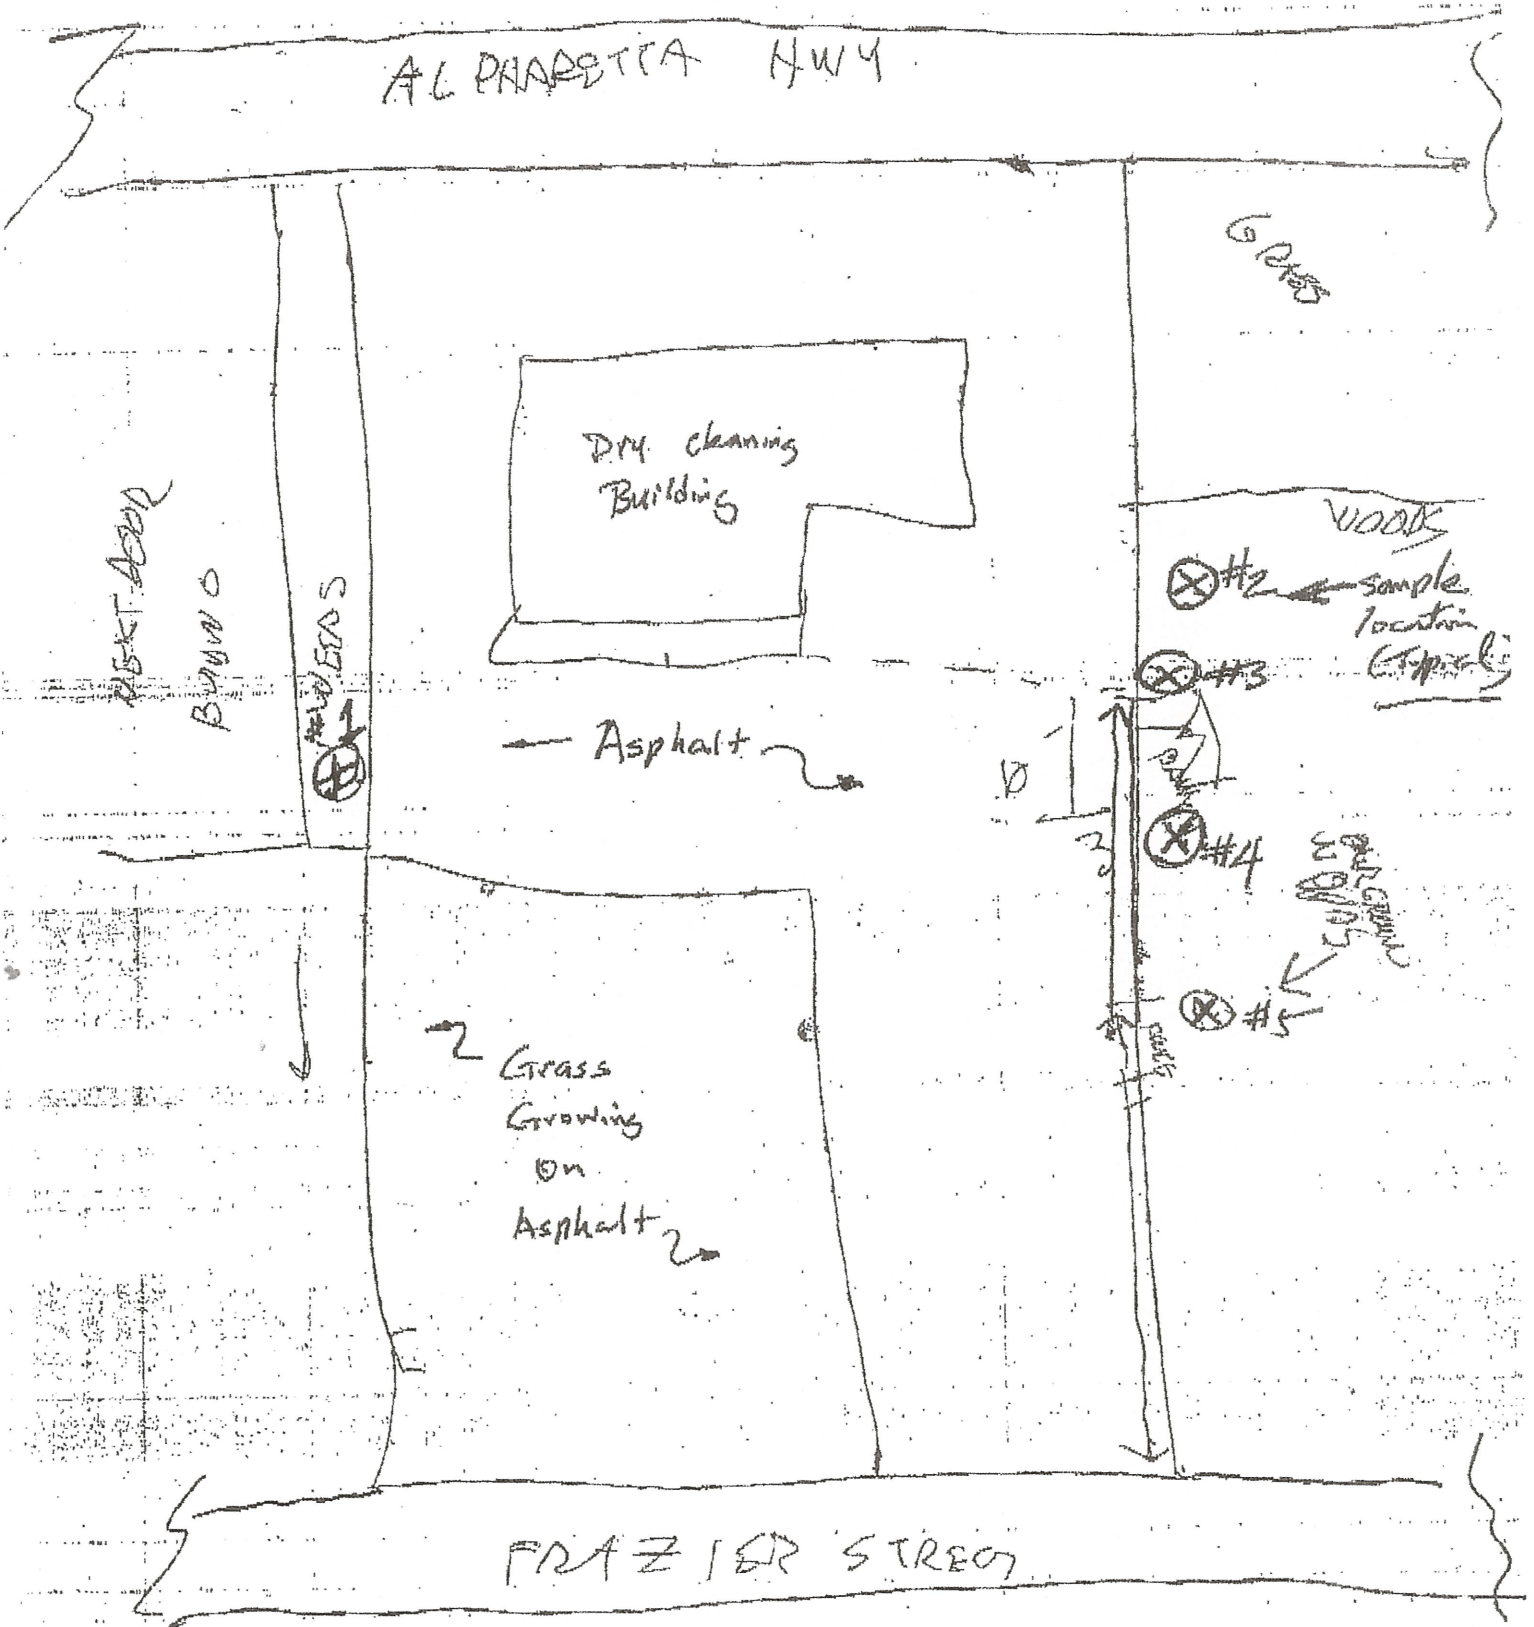 ALPHARETTA HWY.
GRASS
Dry cleaning
Building
WOODS
#2
sample
location
(Typical)
NEXT DOOR
WEEDS
#1
#3
Asphalt
#4
#5
Grass
Growing
on
Asphalt
FRAZIER STREET